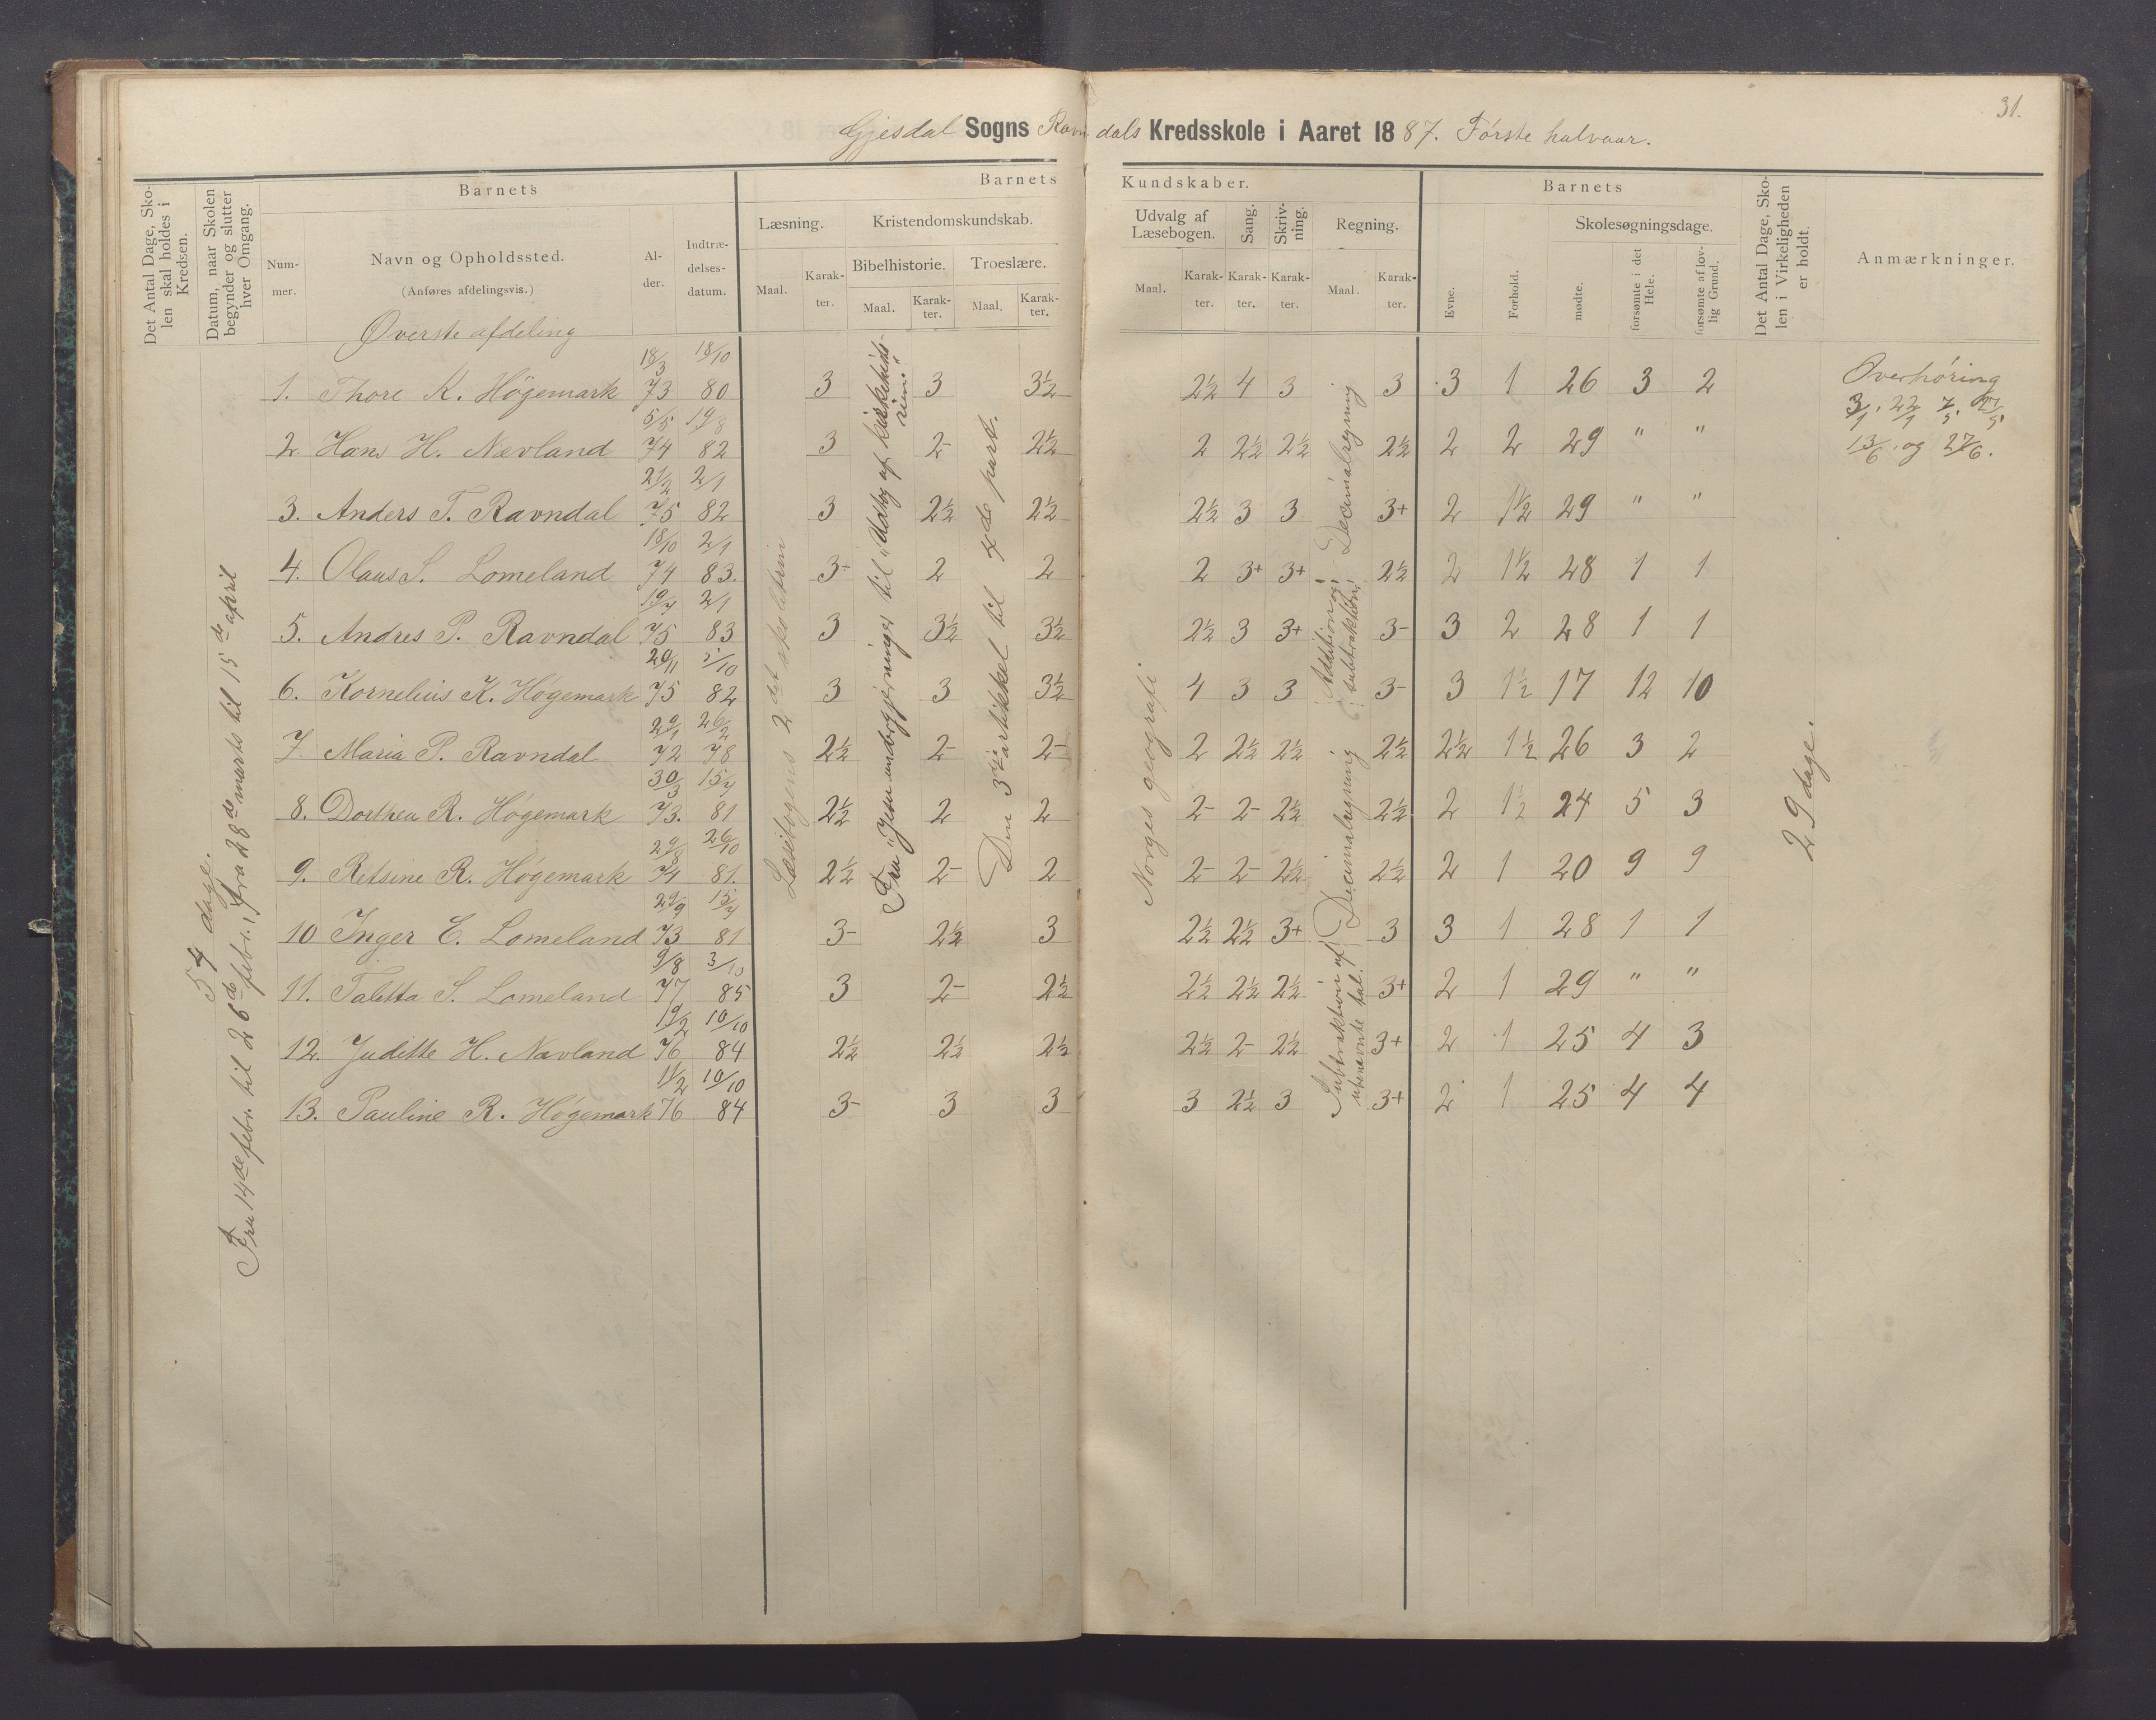 31.
Gjesdal Sogns Ravndals Kredsskole i Aaret 1887. Første halvaar.
Det Antal Dage, Skolen skal holdes i Kredsen.
Datum, naar Skolen begynder og slutter hver Omgang.
Barnets
Nummer.
Navn og Opholdssted.
(Anføres afdelingsvis.)
Alder.
Indtrædelsesdatum.
Barnets Kundskaber.
Læsning.
Maal.
Karakter.
Kristendomskundskab.
Bibelhistorie.
Maal.
Karakter.
Troeslære.
Maal.
Karakter.
Udvalg af Læsebogen.
Maal.
Karakter.
Sang.
Karakter.
Skrivning.
Karakter.
Regning.
Maal.
Karakter.
Barnets
Evne.
Forhold.
Skolesøgningsdage.
mødte.
forsømte i det Hele.
forsømte af lovlig Grund.
Det Antal Dage, Skolen i Virkeligheden er holdt.
Anmærkninger.
Øverste afdeling
1. Thore K. Högemark 18/3 73 18/10 80 3 3 3½ 2½ 4 3 3 3 1 26 3 2
2. Hans H. Nævland 5/5 74 19/8 82 3 2- 2½ 2 2½ 2½ 2½ 2 2 29 " "
3. Anders T. Ravndal 21/2 75 2/1 82 3 2½ 2½ 2½ 3 3 3+ 2 1½ 29 " "
4. Olaus S. Lomeland 18/10 74 2/1 83. 3- 2 2 2 3+ 3+ 2½ 2 1½ 28 1 1
5. Andres P. Ravndal 19/4 75 2/1 83 3 3½ 3½ 2½ 3 3+ 3- 3 2 28 1 1
6. Kornelius K. Høgemark 20/11 75 5/10 82 3 3 3½ 4 3 3 3- 3 1½ 17 12 10
7. Maria P. Ravndal 29/1 72 26/2 78 2½ 2- 2- 2 2½ 2½ 2½ 2½ 1½ 26 3 2
8. Dorthea R. Høgemark 30/3 73. 15/4 81 2½ 2 2 2- 2- 2½ 2½ 2 1½ 24 5 3
9. Retsine R. Høgemark 74 26/10 81. 2½ 2- 2 2- 2- 2½ 2½ 2 1 20 9 9
10 Inger E. Lomeland 29/9 73 15/4 81 3- 2½ 3 2½ 2½ 3+ 3 3 1 28 1 1
11. Taletta S. Lomeland 9/8 77 3/10 85 3 2- 2½ 2½ 2½ 2½ 3+ 2 1 29 " "
12. Juditte H. Nævland 19/2 76 10/10 84 2½ 2½ 2½ 2½ 2- 2½ 3+ 2 1 25 4 3
13. Pauline R. Høgemark 11/2 76 10/10 84 3- 3 3 3 2½ 3 3+ 2 1 25 4 4
54 dage.
Fra 14de febr. til 26de febr., fra 28de marts til 15de april
Læsebogens 2det skoletrin
Fra "Jesu undergjerninger til "Udtog af kirkehistorien".
Den 3die artikkel til 4de part.
Norges geografi
Decimalregning
Addition og subtraktion
Decimalregning
Subtraktion af ubenævnte tal.
29 dage.
Overhøring
3/1. 22/1
13/6. og 27/6.